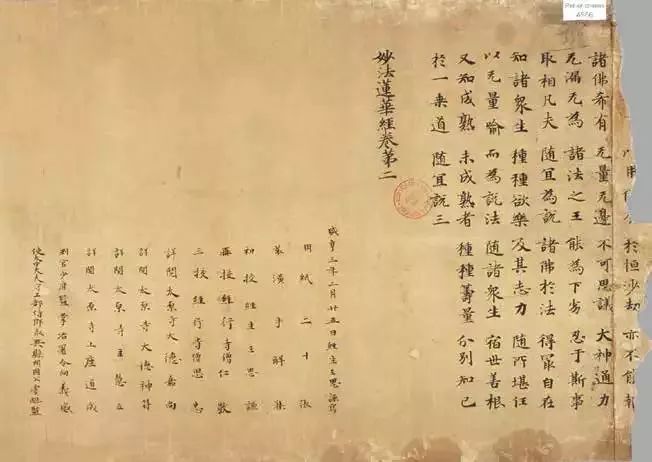 於恒沙劫 亦不能報
諸佛希有 无量无邊 不可思議 大神通力
无漏无為 諸法之王 能為下劣 忍于斯事
取相凡夫 隨宜為說 諸佛於法 得冣自在
知諸衆生 種種欲樂 及其志力 隨所堪任
以无量喻 而為說法 隨諸衆生 宿世善根
又知成熟 未成熟者 種種籌量 分別知已
於一乘道 隨宜說三
妙法蓮華經卷第二
咸亨三年二月廿五日經生王思謙寫
用紙二十張
裝潢手解集
初校經生王思謙
再校經行寺僧仁敬
三校經行寺僧思忠
詳閱太原寺大德嘉尚
詳閱太原寺大德神符
詳閱太原寺主慧立
詳閱太原寺上座道成
判官少府監掌冶署令向義感
使太中大夫守工部侍郎永興縣開國公虞昶監